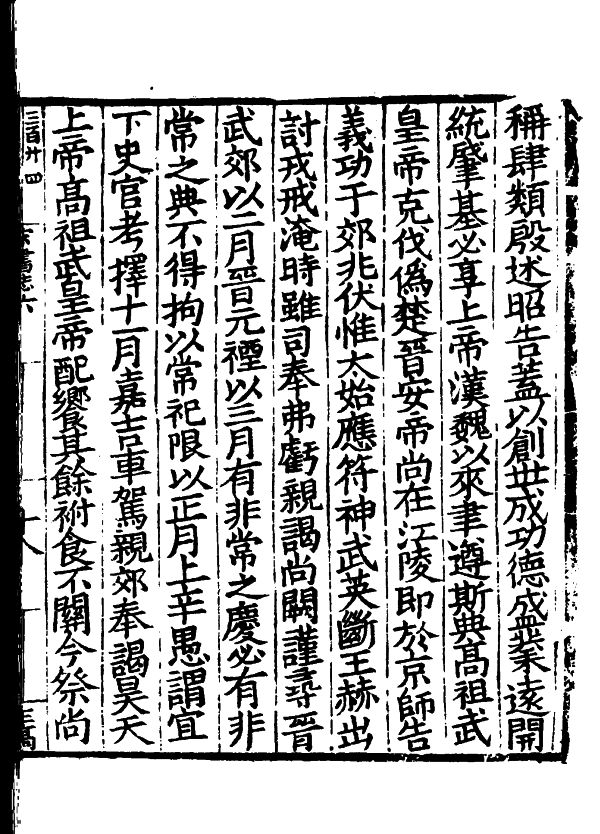 稱肆類殷述昭告蓋以創世成功德盛業遠開
統肇基必享上帝漢魏以來聿遵斯典髙祖武
皇帝克伐僞楚晉安帝尚在江陵即於京師告
義功于郊兆伏惟太始應符神武英斷王赫出
討戎戒淹時雖司奉弗虧親謁尚闕謹尋晉
武郊以二月晉元禋以三月有非常之慶必有非
常之典不得拘以常祀限以正月上辛愚謂宜
下史官考擇十一月嘉吉車駕親郊奉謁昊天
上帝髙祖武皇帝配饗其餘祔食不關今祭尚
三百卅四
宋書志六
十八